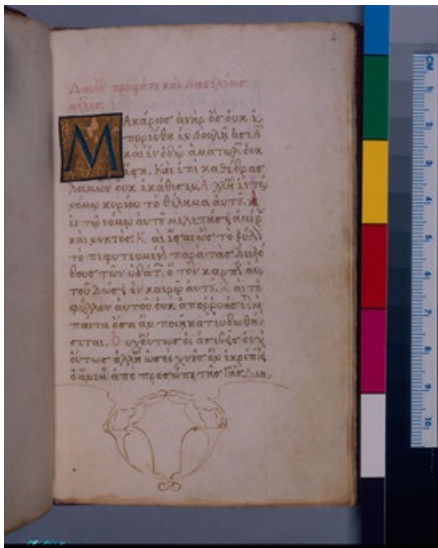 Δαυὶδ προφήτου καὶ βασιλέως
μέλος
Μακάριος ἀνὴρ ὃς οὐκ ἐ
πορεύθη ἐν βουλῇ ἀσεβ
καὶ ἐν ὁδῷ ἁμαρτωλ οὐκ
ἔστη. Καὶ ἐπὶ καθέδρας
λοιμῶν οὐκ ἐκάθισεν. Ἀλλ ἢ ἐν τῷ
νόμῳ κυρίου τὸ θέλημα αὐτοῦ. κ
ἐν τῷ νόμῳ αὐτοῦ μελετήσει ἡμέρ
καὶ νυκτός. Καὶ ἔσται ὡς τὸ ξύλο
τὸ πεφυτευμένον παρὰ τὰς διεξό
δους τῶν ὑδάτ. ὃ τὸν καρπὸν αὐ
τοῦ δώσει ἐν καιρῷ αὐτοῦ. Καὶ τὸ
φύλλον αὐτοῦ οὐκ ἀπορρυήσεται
πάντα ὅσα ἂν ποιῇ κατευοδωθή
σεται. Οὐχ οὕτως οἱ ἀσεβεῖς οὐχ
οὕτως. ἀλλ ἢ ὡσεὶ χνοῦς ὃν ἐκρίπτει
ὁ ἄνεμ ἀπὸ προσώπου τῆς γῆς. Δια